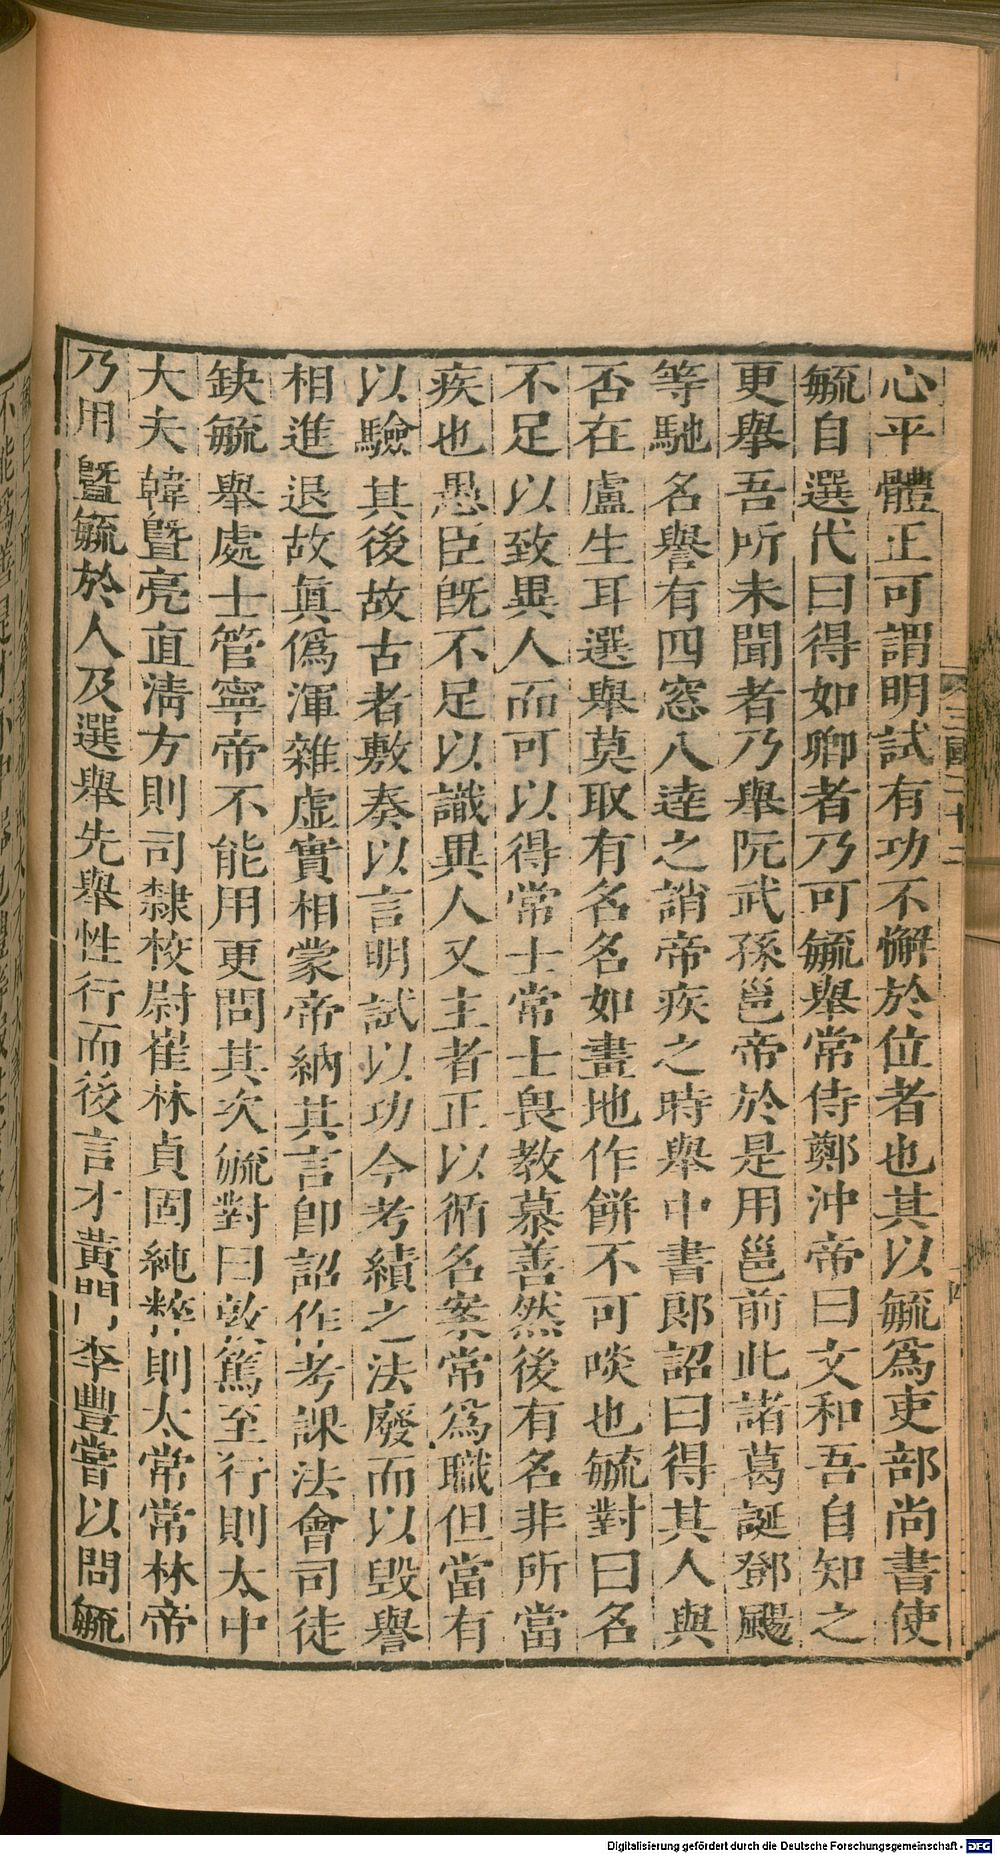 心平體正可謂明試有功不懈於位者也其以毓爲吏部尚書使
毓自選代曰得如卿者乃可毓舉常侍鄭沖帝曰文和吾自知之
更舉吾所未聞者乃舉阮武孫邕帝於是用邕前此諸葛誕鄧颺
等馳名譽有四窓八達之誚帝疾之時舉中書郎詔曰得其人與
否在盧生耳選舉莫取有名名如畫地作餅不可啖也毓對曰名
不足以致異人而可以得常士常士畏教慕善然後有名非所當
疾也愚臣旣不足以識異人又主者正以循名案常爲職但當有
以驗其後故古者敷奏以言明試以功今考績之法廢而以毀譽
相進退故眞僞渾雜虛實相蒙帝納其言卽詔作考課法會司徒
缺毓舉處士管寧帝不能用更問其次毓對曰敦篤至行則太中
大夫韓曁亮直淸方則司隸校尉崔林貞固純粹則太常常林帝
乃用曁毓於人及選舉先舉性行而後言才黃門李豐嘗以問毓
三國二十二
四
Digitalisierung gefördert durch die Deutsche Forschungsgemeinschaft - DFG